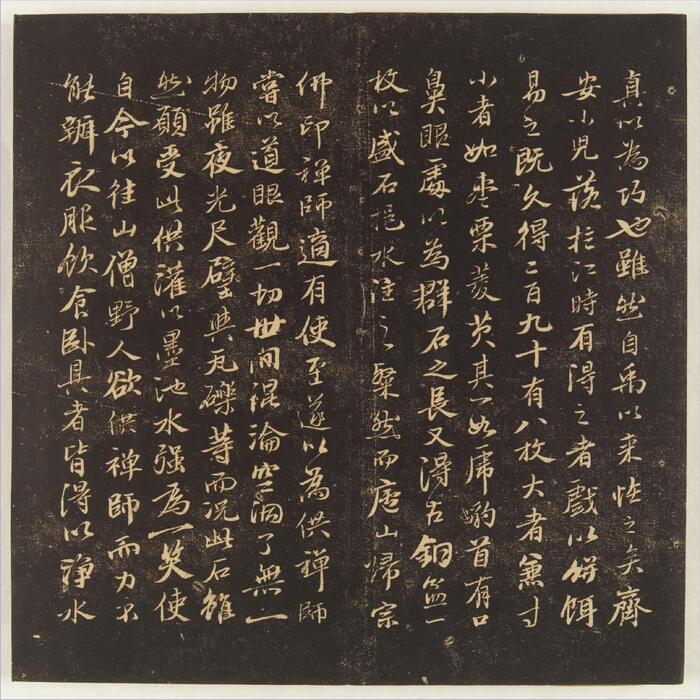 真以為巧也雖然自禹以来恠之矣齊
安小兒浴於江時有得之者戲以餅餌
易之既久得二百九十有八枚大者兼寸
小者如棗栗菱芡其一如虎豹首有口
鼻眼處以為群石之長又得古銅盆一
枚以盛石挹水注之粲然而廬山歸宗
佛印禪師適有使至遂以為供禪師
嘗以道眼觀一切世間混淪空洞了無一
物雖夜光尺璧與瓦礫等而况此石雖
然願受此供灌以墨池水強為一笑使
自今以往山僧野人欲供禪師而力不
能辦衣服飲食卧具者皆得以淨水